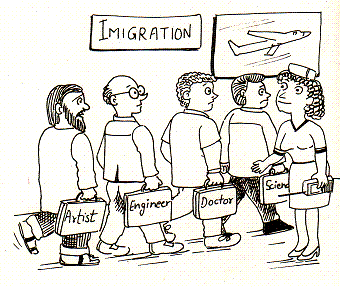 IMIGRATION
Artist
Engineer
Doctor
Scien